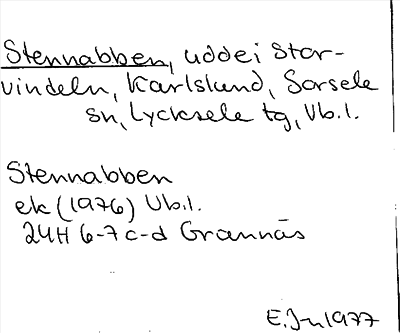 Stennabben, udde i Stor-
vindeln, Karlslund, Sorsele
sn, Lycksele tg, Vb.l.
Stennabben
ek (1976) Vb.l.
24H 6-7 c-d Grannäs
E. Jn 1977